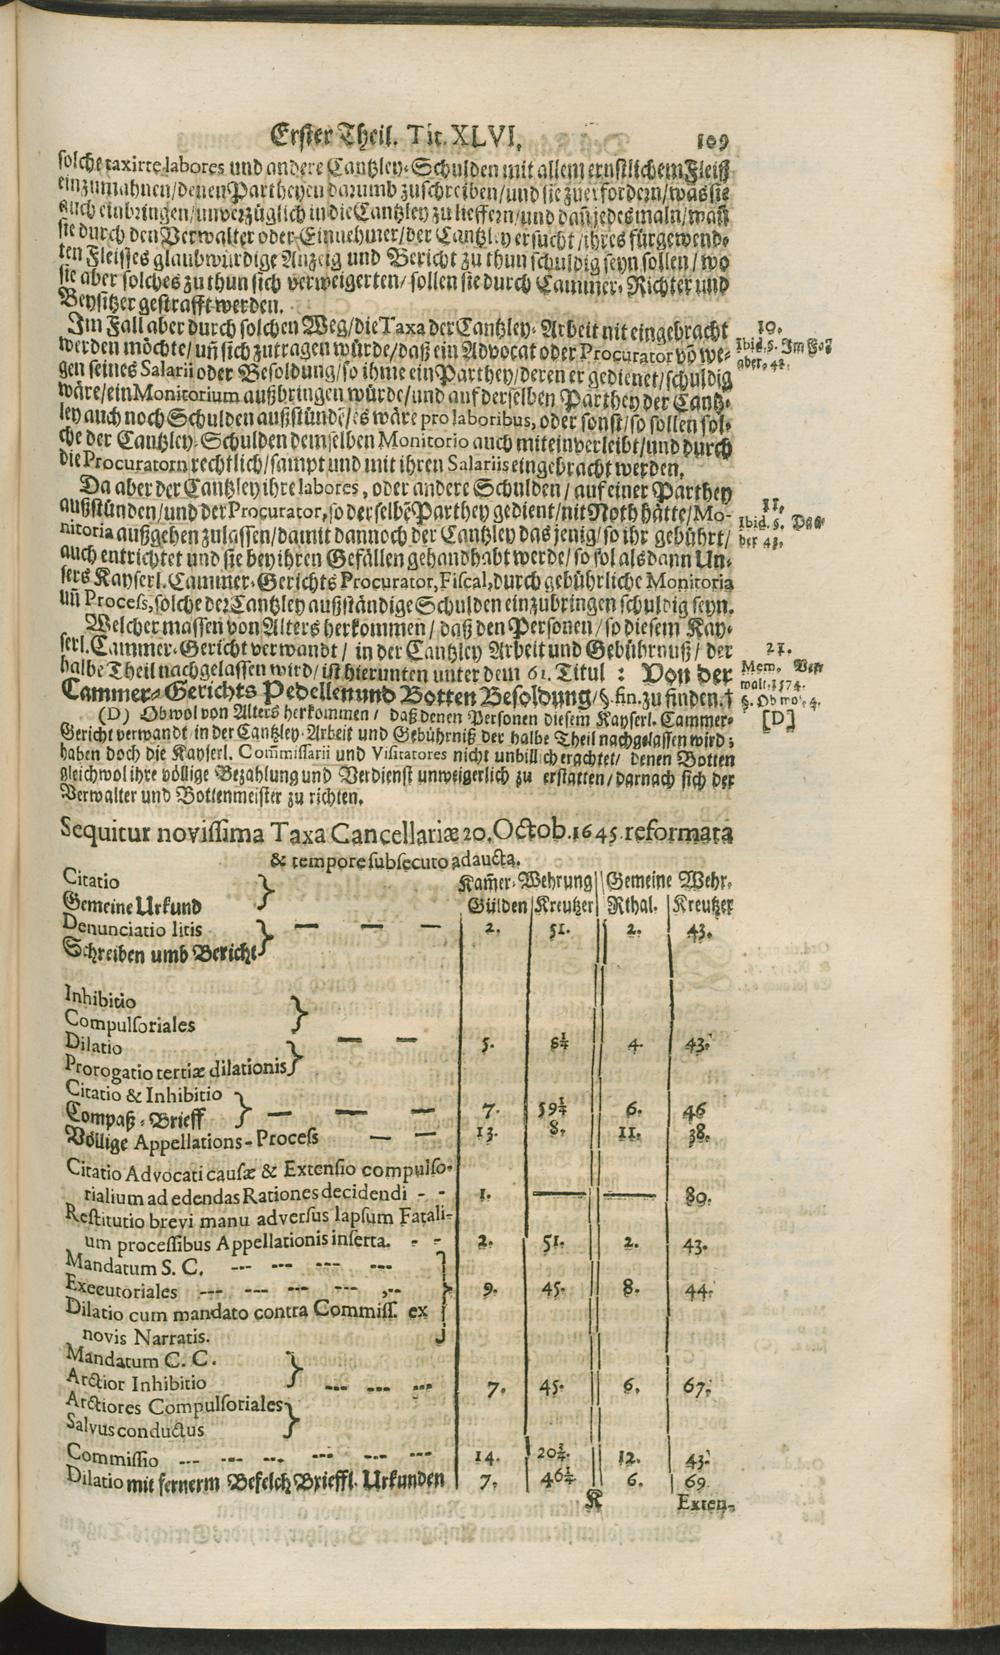 Erster Theil. Tit. XLVI. 109
solche taxirte labores und andere Cantzley-Schulden mit allem ernstlichem Fleiß
einzumahnen/denen Partheyen darumb zuschreiben/und sie zuerfordern/was sie
auch einbringen/unverzüglich in die Cantzley zu lieffern/und dañ jedesmaln/wañ
sie durch den Verwalter oder Einnehmer/der Cantzley ersucht/ihres fürgewend-
ten Fleisses glaubwürdige Anzeig und Bericht zu thun schuldig seyn sollen/wo
sie aber solches zu thun sich verweigerten/sollen sie durch Cammer-Richter und
Beysitzer gestrafft werden.
Im Fall aber durch solchen Weg/die Taxa der Cantzley-Arbeit nit eingebracht
werden möchte/uñ sich zutragen würde/daß ein Advocat oder Procurator võ we-
gen seines Salarii oder Besoldung/so ihme ein Parthey/deren er gedienet/schuldig
wäre/ein Monitorium außbringen würde/und auf derselben Parthey der Cantz-
ley auch noch Schulden außstünde/es wäre pro laboribus, oder sonst/so sollen sol-
che der Cantzley-Schulden demselben Monitorio auch miteinverleibt/und durch
die Procuratorn rechtlich/sampt und mit ihren Salariis eingebracht werden.
10.
Ibid. §. Im Fal
aber. 42.
Da aber der Cantzley ihre labores, oder andere Schulden/auf einer Parthey
außstünden/und der Procurator, so derselbẽ Parthey gedient/nit Noth hätte/Mo-
nitoria außgehen zulassen/damit dannoch der Cantzley das jenig/so ihr gebührt/
auch entrichtet und sie bey ihren Gefällen gehandhabt werde/so sol alsdann Un-
sers Kayserl. Cammer-Gerichts Procurator, Fiscal, durch gebührliche Monitoria
uñ Process, solche der Cantzley außständige Schulden einzubringen schuldig seyn.
11.
Ibid. §. Da a-
ber 43.
Welcher massen von Alters herkommen/daß den Personen/so diesem Kay-
serl. Cammer-Gericht verwandt/in der Cantzley Arbeit und Gebührnuß/der
halbe Theil nachgelassen wird/ist hierunten unter dem 61. Titul: Von der
Cammer-Gerichts Pedellen und Botten Besoldung/§. fin. zu finden.†
21.
Mem. Ver
walt. 1574.
§. Ob wo. 4.
[D]
(D) Obwol von Alters herkommen/daß denen Personen diesem Kayserl. Cammer-
Gericht verwandt in der Cantzley-Arbeit und Gebührniß der halbe Theil nachgelassen wird;
haben doch die Kayserl. Com̃issarii und Visitatores nicht unbillich erachtet/denen Botten
gleichwol ihre völlige Bezahlung und Verdienst unweigerlich zu erstatten/darnach sich der
Verwalter und Bottenmeister zu richten.
Sequitur novissima Taxa Cancellariæ 20. Octob. 1645. reformata
& tempore subsecuto adaucta.
Kam̃er-Wehrung || Gemeine Wehr.
Gülden | Kreutzer || Rthal. | Kreutzer
Citatio
Gemeine Urkund }
Denunciatio litis — — — 2. 51. 2. 43.
Schreiben umb Bericht }
Inhibitio
Compulsoriales }
Dilatio — — 5. 8¼ 4. 43.
Prorogatio tertiæ dilationis }
Citatio & Inhibitio
Compaß-Brieff } — — — 7. 59¼ 6. 46
Völlige Appellations-Process — — 13. 8. 11. 38.
Citatio Advocati causæ & Extensio compulso-
rialium ad edendas Rationes decidendi - - 1. — — 80.
Restitutio brevi manu adversus lapsum Fatali-
um processibus Appellationis inserta. - - 2. 51. 2. 43.
Mandatum S. C. --- --- --- ---
Executoriales --- --- --- --- --- 9. 45. 8. 44.
Dilatio cum mandato contra Commiss. ex
novis Narratis.
Mandatum C. C.
Arctior Inhibitio } --- --- --- 7. 45. 6. 67.
Arctiores Compulsoriales
Salvus conductus }
Commissio --- --- --- --- --- --- 14. 20¾ 12. 43.
Dilatio mit fernerm Befelch Brieffl. Urkunden 7. 46¼ 6. 69
K Exten-